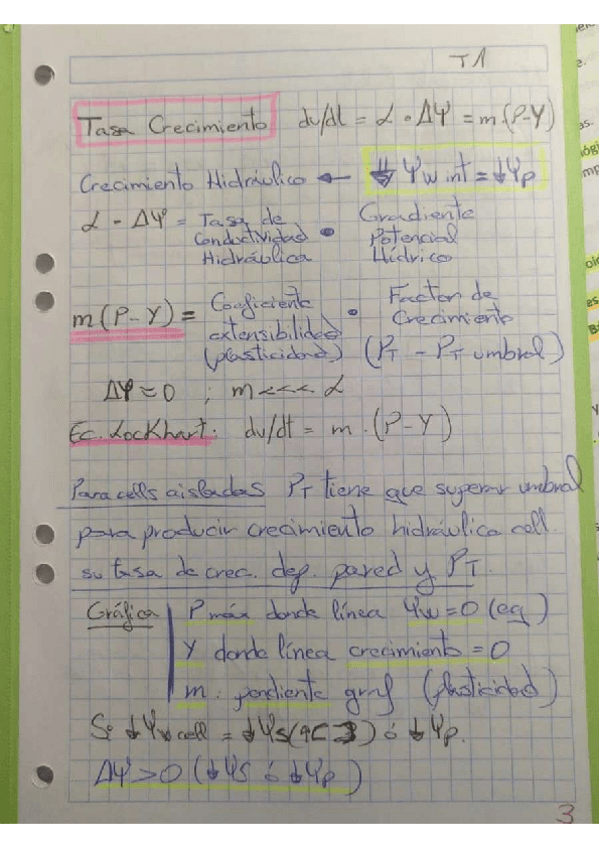 T1
Tasa Crecimiento dv/dt = L · ΔΨ = m(P-Y)
Crecimiento Hidráulico ← ⇓ Ψw int = ↓Ψp
L - ΔΨ = Tasa de Conductividad Hidráulica • Gradiente Potencial Hídrico
m(P-Y) = Coeficiente extensibilidad (plasticidad) • Factor de Crecimiento (PT - PT umbral)
ΔΨ ≈ 0 ; m <<< L
Ec. Lockhart: dv/dt = m · (P-Y)
Para cells aisladas PT tiene que superar umbral
para producir crecimiento hidráulica cell.
su tasa de crec. dep. pared y PT.
Gráfica P máx donde línea Ψw = 0 (eq)
Y donde línea crecimiento = 0
m : pendiente graf (plasticidad)
Si ↓Ψw cell = ↓Ψs(↑[ ]) ó ↓Ψp.
ΔΨ > 0 (↓Ψs ó ↓Ψp)
3